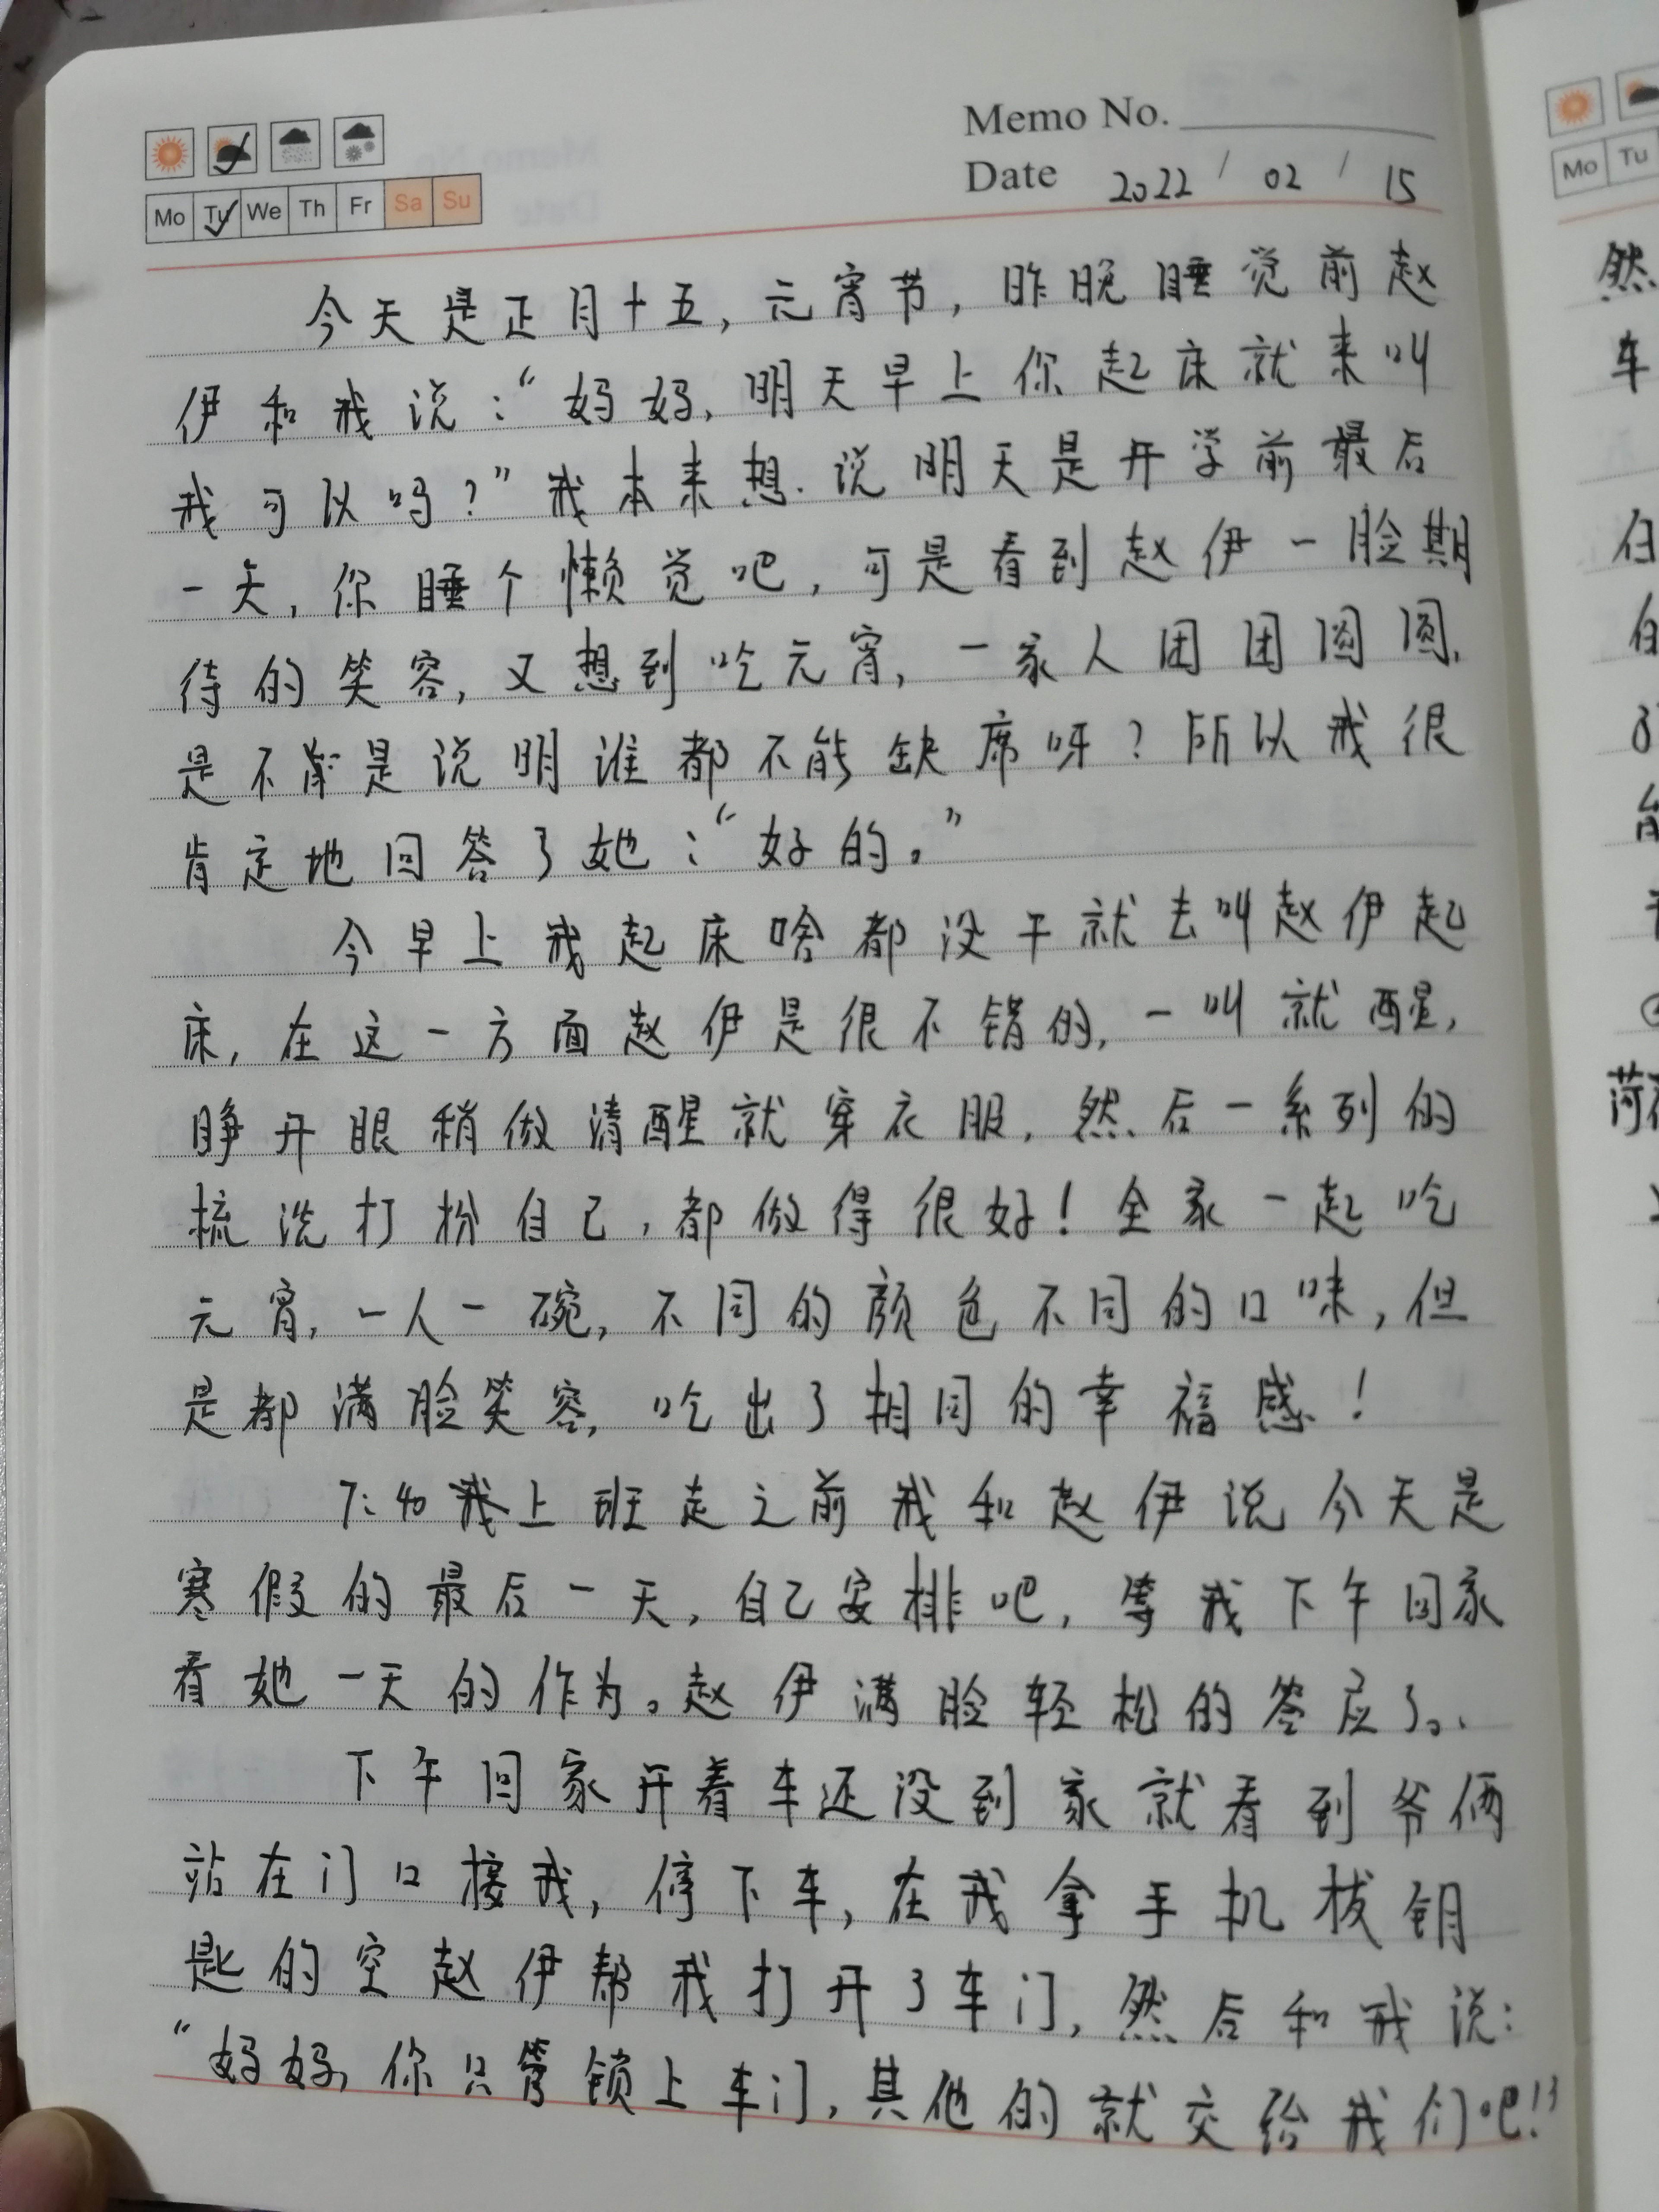 Memo No.
Date 2022 / 02 / 15
Mo Tu We Th Fr Sa Su
今天是正月十五,元宵节,昨晚睡觉前赵
伊和我说:“妈妈,明天早上你起床就来叫
我可以吗?”我本来想说明天是开学前最后
一天,你睡个懒觉吧,可是看到赵伊一脸期
待的笑容,又想到吃元宵,一家人团团圆圆,
是不是说明谁都不能缺席呀?所以我很
肯定地回答了她:“好的。”
今早上我起床啥都没干就去叫赵伊起
床,在这一方面赵伊是很不错的,一叫就醒,
睁开眼稍做清醒就穿衣服,然后一系列的
梳洗打扮自己,都做得很好!全家一起吃
元宵,一人一碗,不同的颜色不同的口味,但
是都满脸笑容,吃出了相同的幸福感!
7:40我上班走之前我和赵伊说今天是
寒假的最后一天,自己安排吧,等我下午回家
看她一天的作为。赵伊满脸轻松的答应了。
下午回家开着车还没到家就看到爷俩
站在门口接我,停下车,在我拿手机拔钥
匙的空赵伊帮我打开了车门,然后和我说:
“妈妈,你只管锁上车门,其他的就交给我们吧!”
Mo Tu
然
车